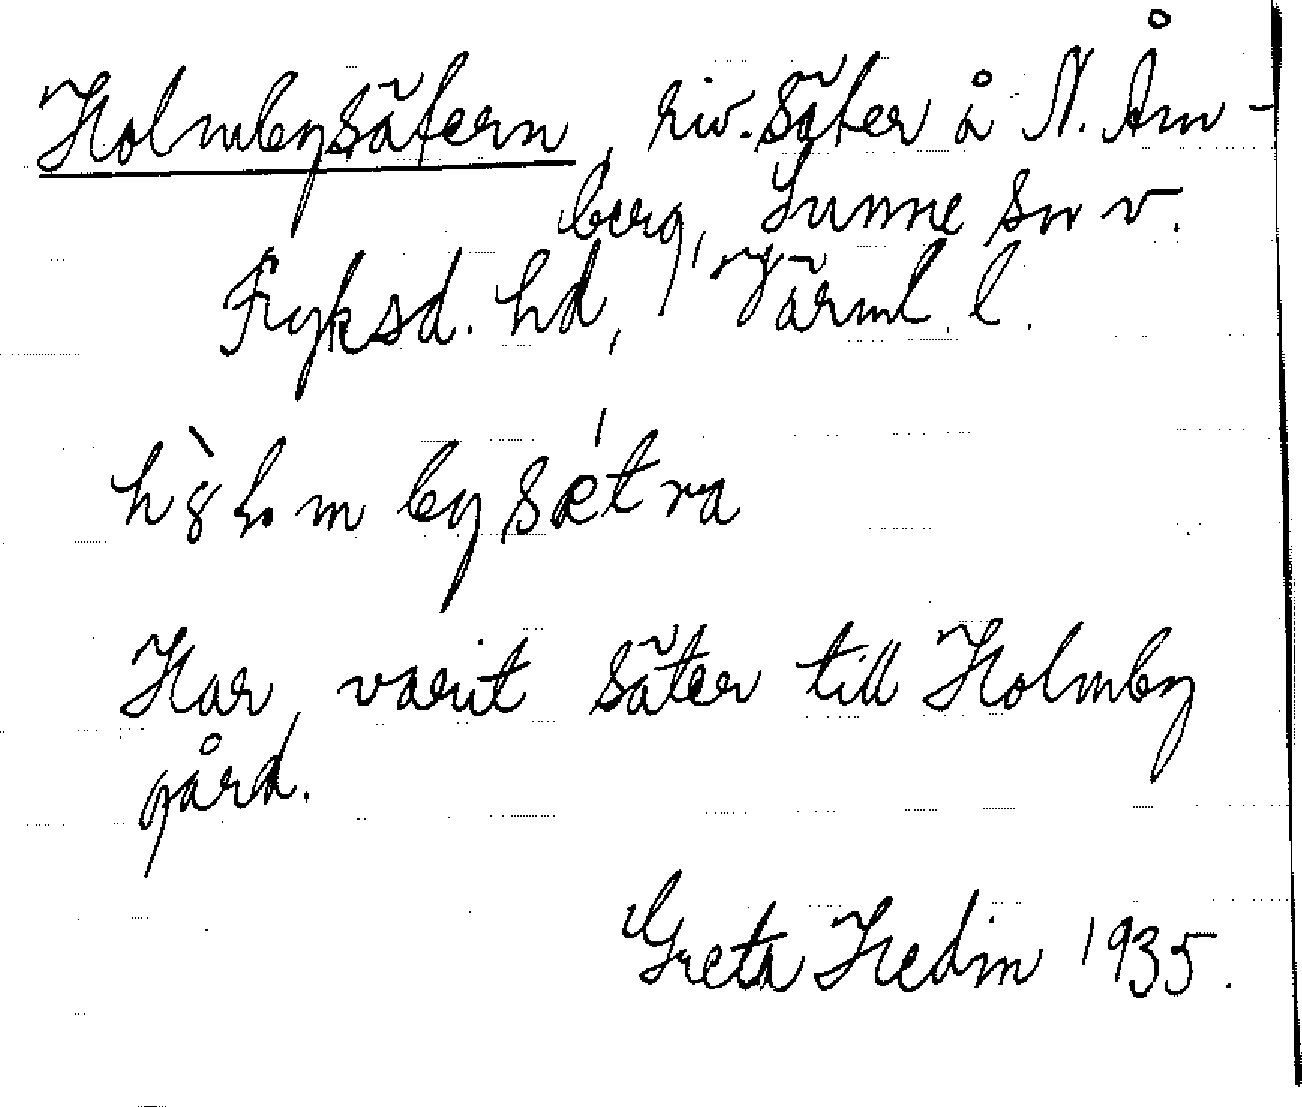 Holmbysätern, riv. Säter å N. Åm-
berg, Sunne sn v.
Fryksd. hd, Värml. l.
hȣ̀ɫm bysǽtra
Har varit säter till Holmby
gård.
Greta Hedin 1935.